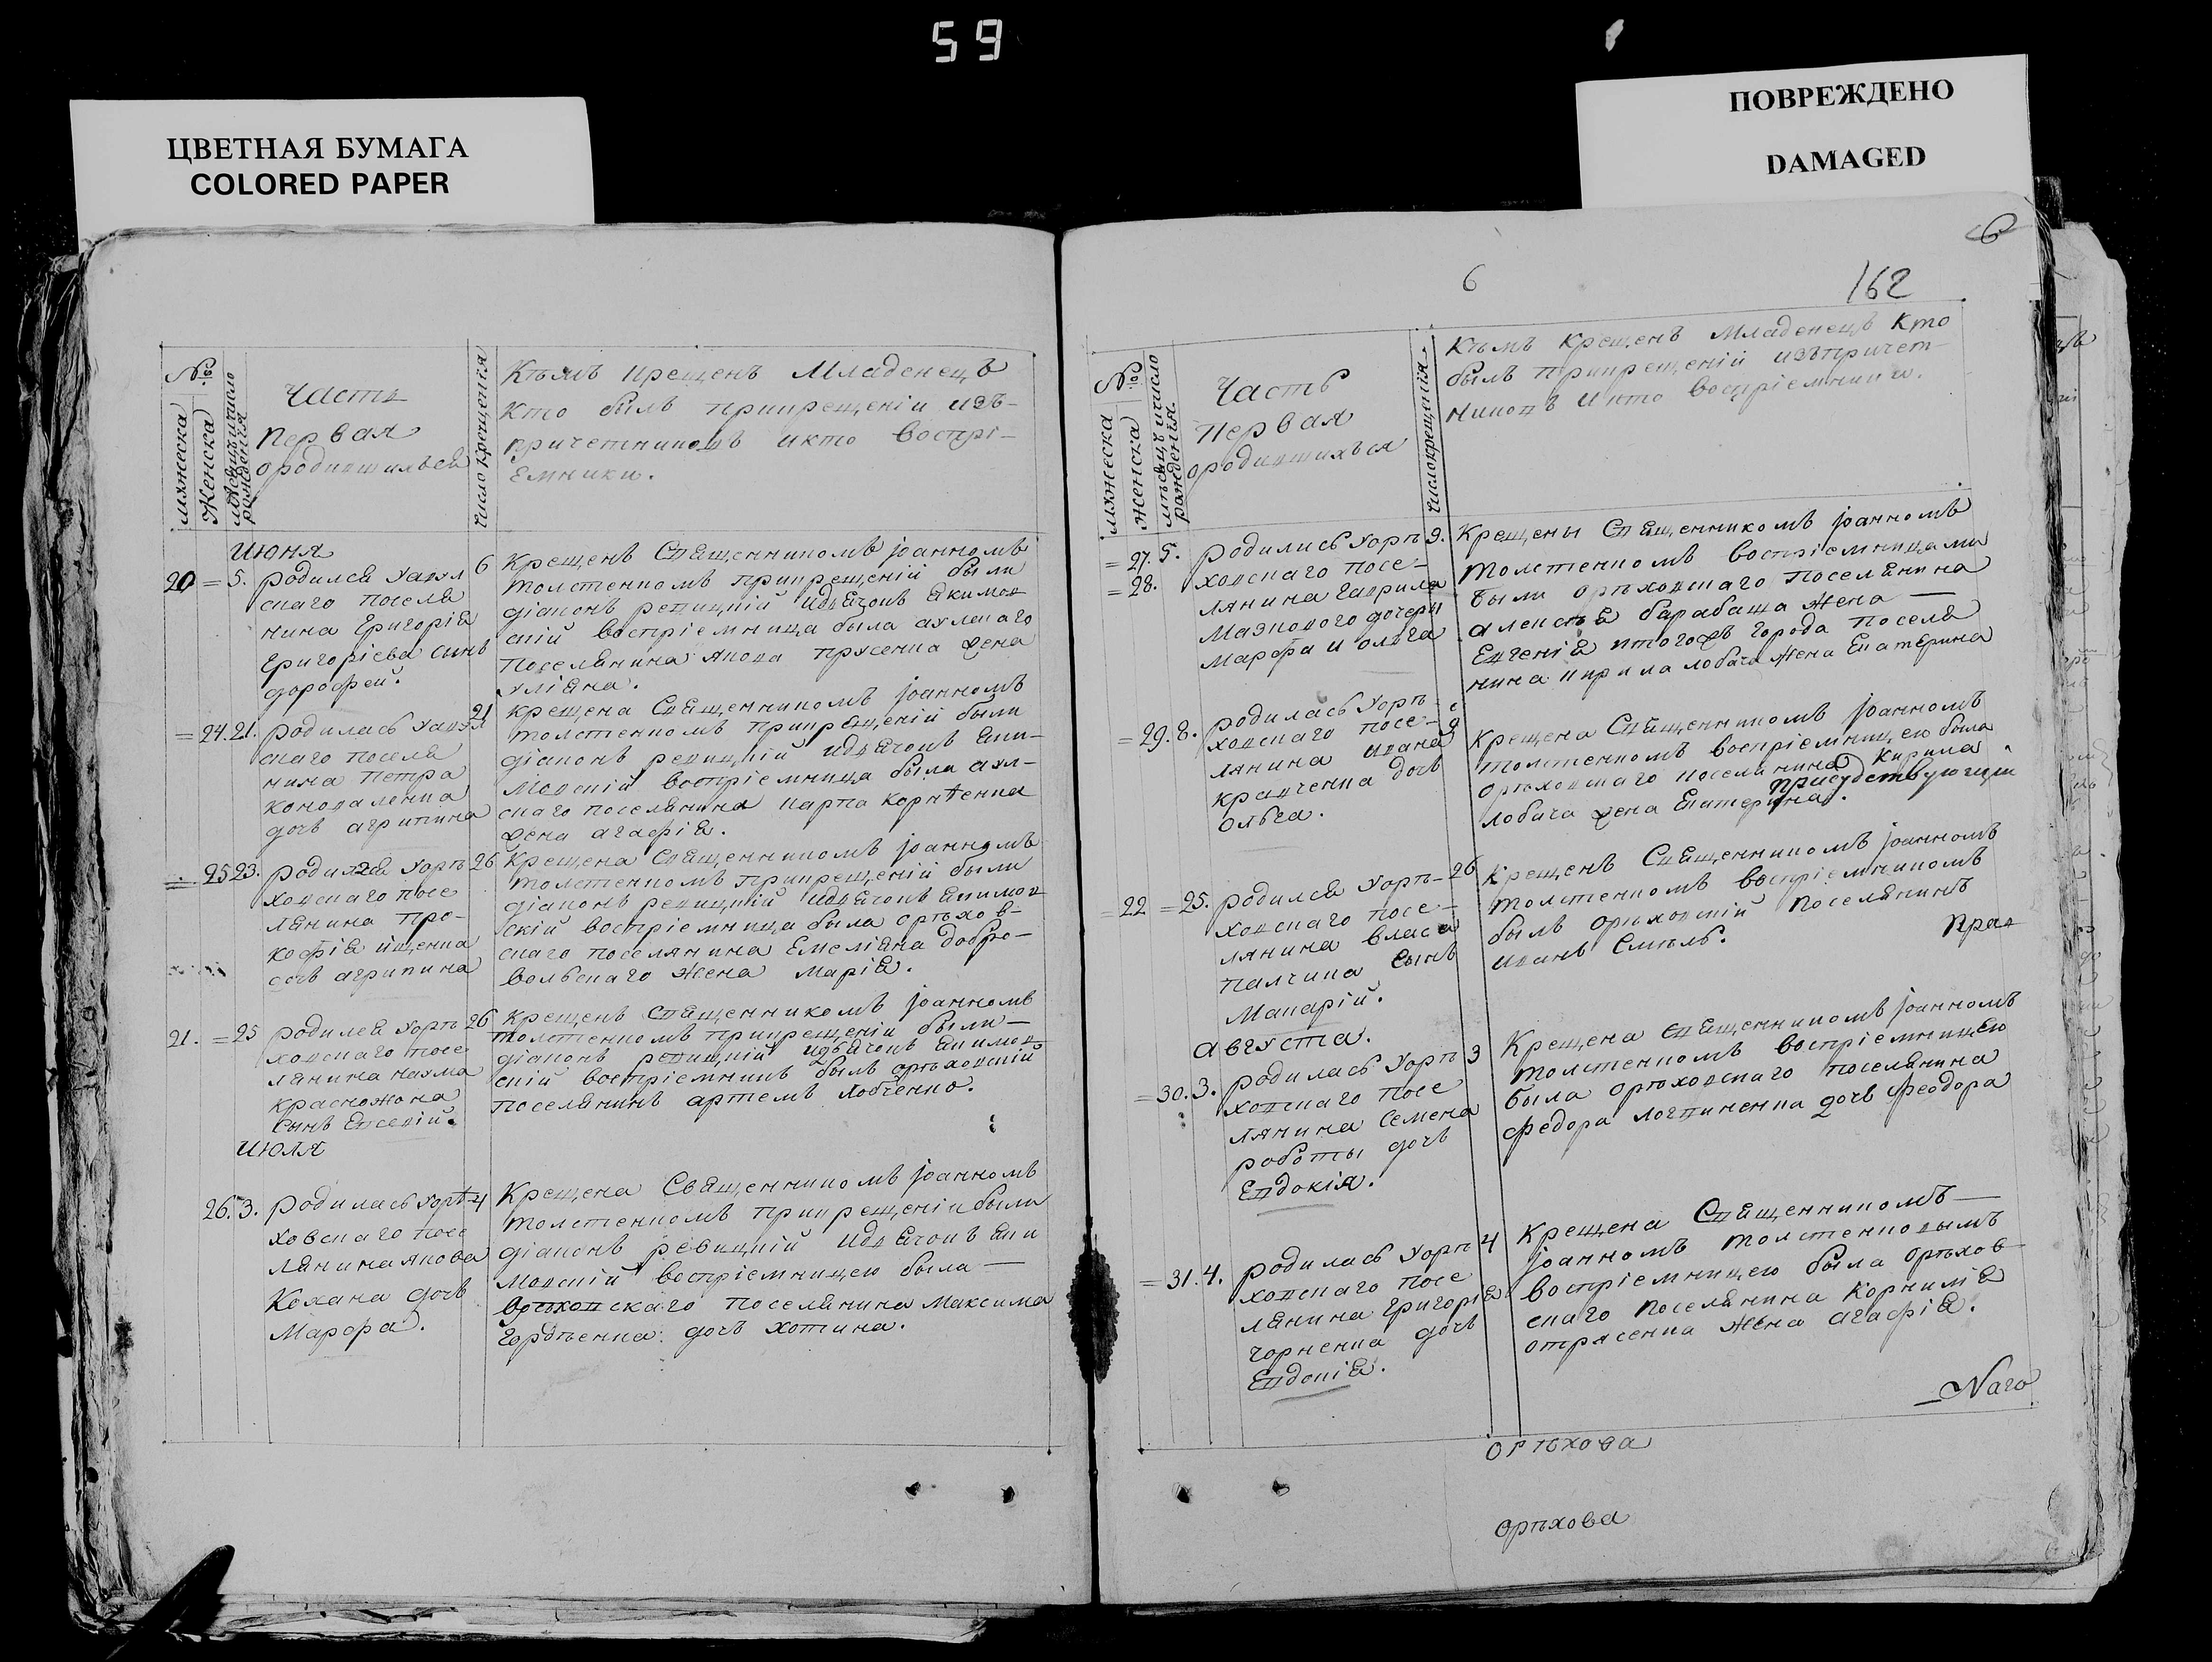 59
ЦВЕТНАЯ БУМАГА
COLORED PAPER
ПОВРЕЖДЕНО
DAMAGED
№
мужеска
Женска
месяцъ и число рожденія
Часть
Первая
ородившихься
Число крещенія
Къмъ крещенъ Младенецъ
Кто былъ прикрещеніи изъ-
причетниковъ икто воспрі-
Емники.
Июня
20 = 5. родился Уаул
скаго поселя
нина Григорія
Григорієва сынъ
дорофей.
6 Крещенъ Священникомъ іоанномъ
толстенкомъ прикрещеній были
діаконъ ревицкій идьячокъ Якимов
скій воспріємница была аулскаго
Поселянина Якова прусенка жена
Уліяна.
= 24. 21. родилась Уаул
скаго поселя
нина Петра
коноваленка
дочь агрипина
21 крещена Священникомъ іоанномъ
толстенкомъ прикрещеній были
діаконъ ревицкій идьячокъ Яки-
мовскій воспріємница была аул-
скаго поселянина карпа Корнѣенка
жена агафія.
= 25 23. родилася Уорѣ
ховскаго посе
лянина про-
кофія
дочь агрипина
26 Крещена Священникомъ іоанномъ
толстенкомъ прикрещеній были
діаконъ ревицкій идьячокъ Якимов
скій воспріємница была орѣхов-
скаго поселянина Емеліяна добро-
вольскаго жена Марія.
21. = 25 родился Уорѣ
ховскаго посе
лянина наума
красножона
Сынъ Евсевій.
26 Крещенъ Священникомъ іоанномъ
толстенкомъ прикрещеній были
діаконъ ревицкій идьячокъ Якимов
скій воспріємникъ былъ орѣховскій
поселянинъ артемъ лобченко.
Июля
26. 3. родилась Уорѣ
ховскаго посе
лянина якова
Кохана дочь
Марфа.
4 Крещена Священникомъ іоанномъ
толстенкомъ прикрещеніи были
діаконъ ревицкій идьячокъ Яки
мовскій воспріємницею была
Орѣховскаго поселянина Максима
Гордѣенка дочь хотина.
6
6
162
№
мужеска
женска
мѣсяцъ ичисло рожденія.
Часть
Первая
ородившихься
Число крещенія.
Къмъ крещенъ Младенецъ Кто
былъ прикрещеній изъпричет-
никовъ икто воспріємники.
= 27. 5.
= 28.
родились Уорѣ
ховскаго посе-
лянина гаврила
Мазкового дочери
Марфа и ольга
9. Крещены Священникомъ іоанномъ
толстенкомъ воспріємницами
были орѣховскаго поселянина
алексѣя барабаша жена
Евгенія итогожъ города поселя
нина кирила лобача жена Екатерина
= 29. 8. родилась Уорѣ
ховскаго посе-
лянина ивана
кравченка дочь
ольга.
9 Крещена Священникомъ іоанномъ
толстенкомъ воспріємницею была
орѣховскаго поселянина Кирила
лобача жена Екатерина.
присудствующи
22 = 25. родился Уорѣ-
ховскаго посе-
лянина власа
палчика сынъ
Макарій.
26 Крещенъ Священникомъ іоанномъ
толстенкомъ воспріємникомъ
былъ орѣховскій поселянинъ
иванъ Смѣлъ.
Прав
Августа.
= 30. 3. родилась Уорѣ
ховскаго посе
лянина Семена
роботы дочь
Евдокія.
3 Крещена Священникомъ іоанномъ
толстенкомъ воспріємницею
была орѣховскаго поселянина
федора логвиненка дочь феодора
= 31. 4. родилась Уорѣ
ховскаго посе
лянина Григорія
чорненка дочь
Евдокія.
4 Крещена Священникомъ
іоанномъ толстенковымъ
воспріємницею была орѣхов
скаго поселянина Корнилія
отрясенка жена агафія.
Наго
Орѣхова
Орѣхова